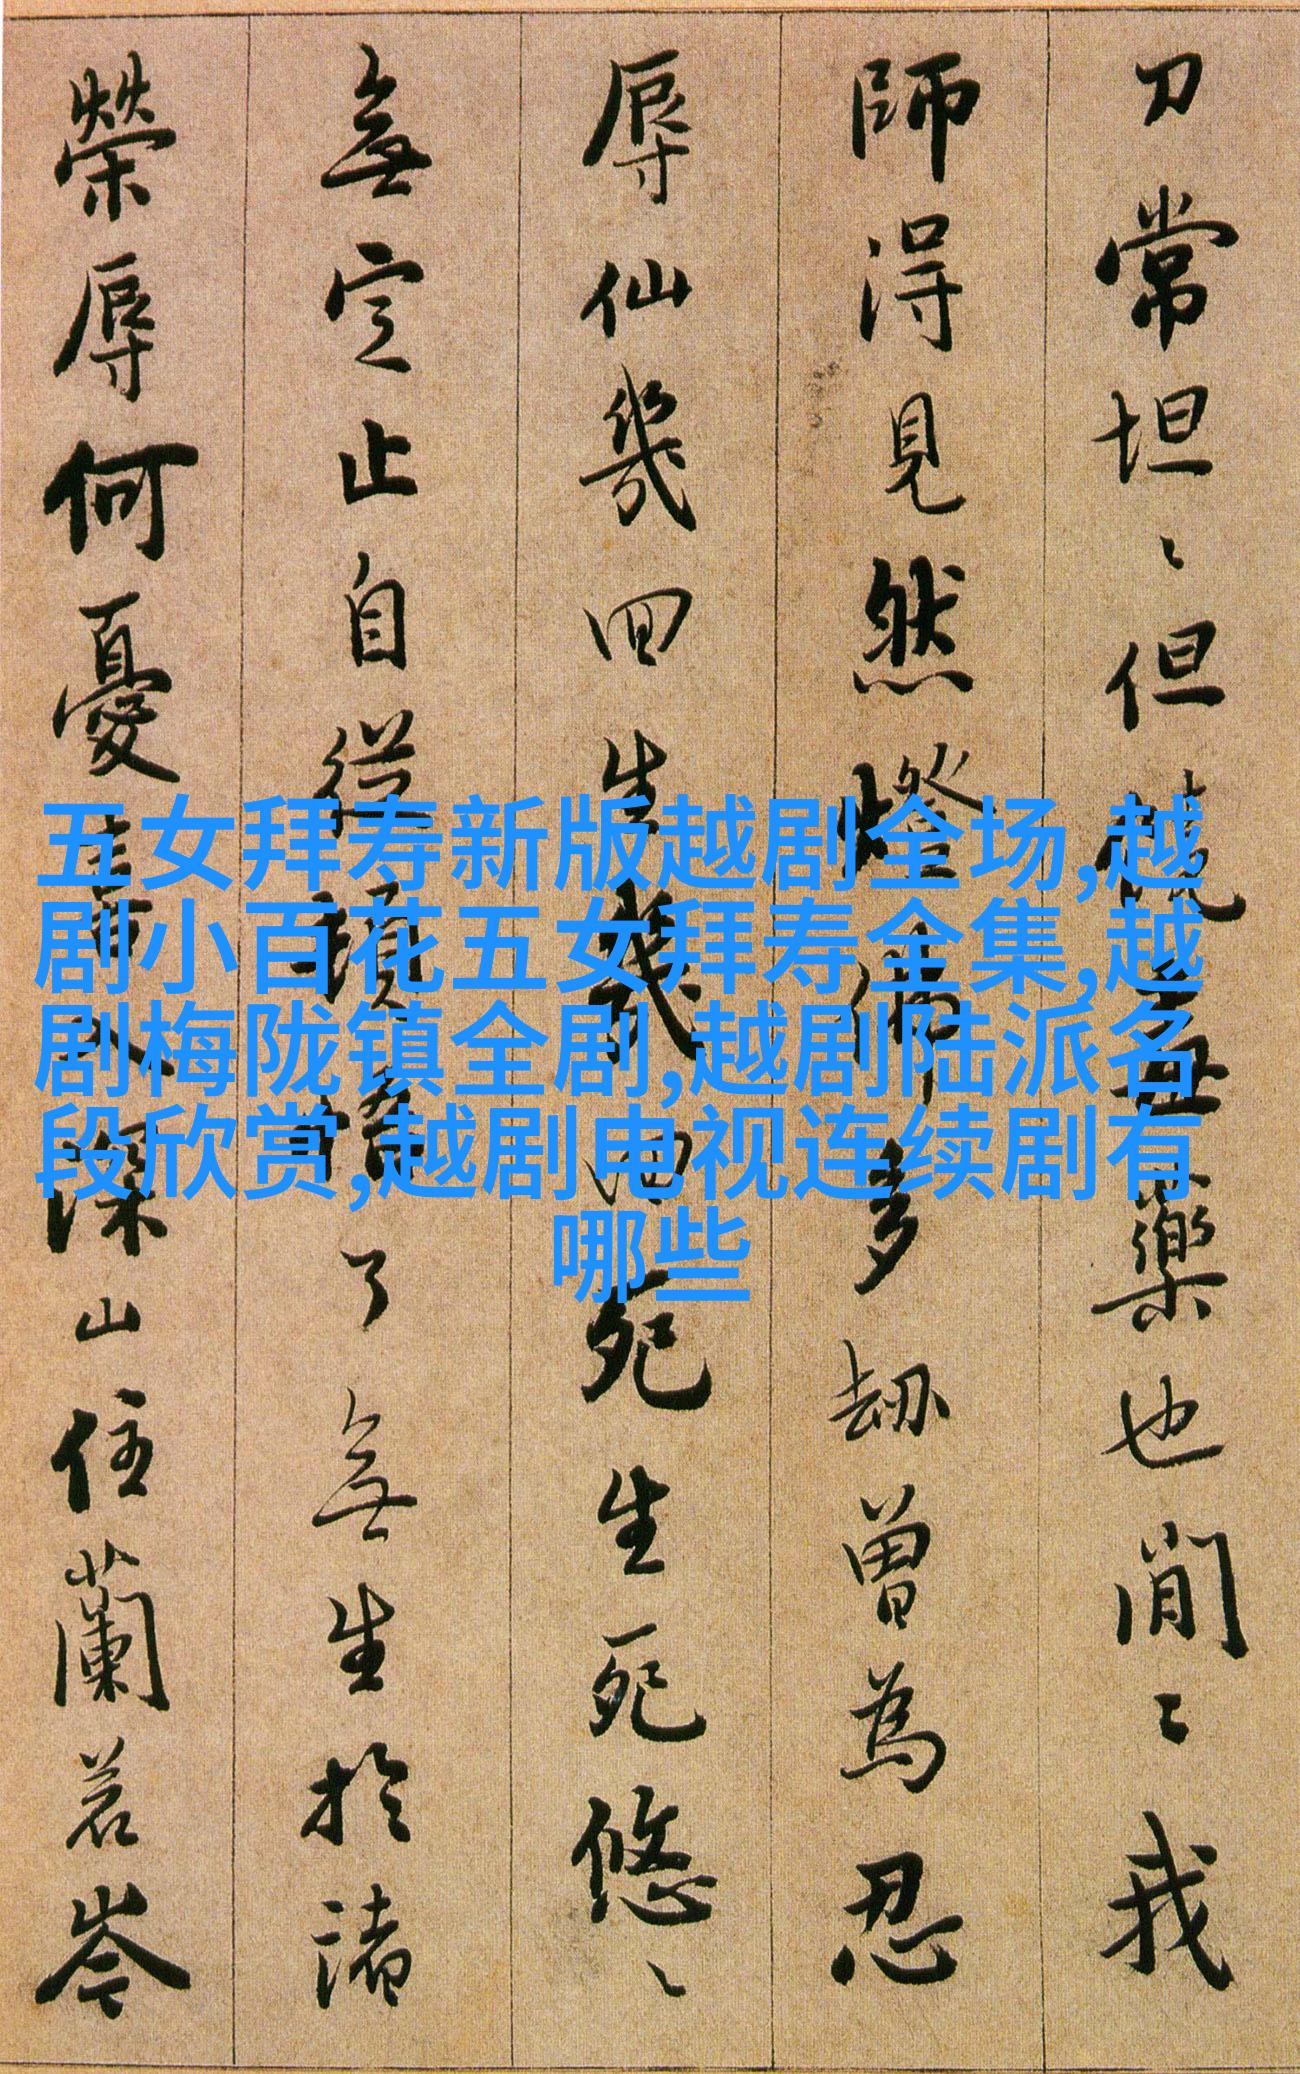 刀常坦〻但饒毒藥也閒〻我
師得見然燈佛多劫曾為忍
辱仙幾回生幾回死生死悠〻
無定止自從頓悟了無生於諸
榮辱何憂喜入深山住蘭若岑
五女拜寿新版越剧全场,越
剧小百花五女拜寿全集,越
剧梅陇镇全剧,越剧陆派名
段欣赏,越剧电视连续剧有
哪些